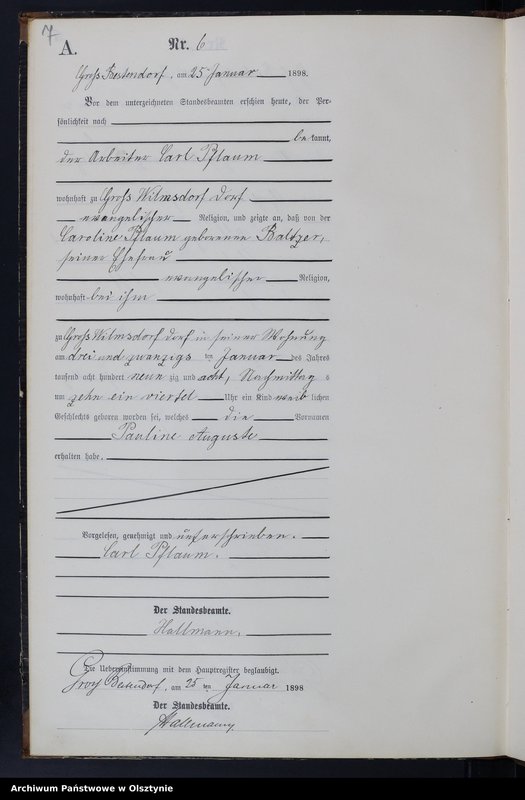 7
A.
Nr. 6
Groß Bestendorf, am 25 Januar 1898.
Vor dem unterzeichneten Standesbeamten erschien heute, der Per-
sönlichkeit nach
be kannt,
der Arbeiter Carl Pflaum
wohnhaft zu Groß Wilmsdorf Dorf
evangelischer Religion, und zeigte an, daß von der
Caroline Pflaum geborenen Baltzer,
seiner Ehefrau
evangelischer Religion,
wohnhaft bei ihm
zu Groß Wilmsdorf Dorf in seiner Wohnung
am drei und zwanzigs ten Januar des Jahres
tausend acht hundert neun zig und acht, Nachmittag s
um zehn ein viertel Uhr ein Kind weib lichen
Geschlechts geboren worden sei, welches die Vornamen
Pauline Auguste
erhalten habe.
Vorgelesen, genehmigt und unterschrieben.
Carl Pflaum.
Der Standesbeamte.
Hallmann.
Die Uebereinstimmung mit dem Hauptregister beglaubigt.
Groß Bestendorf, am 25 ten Januar 1898
Der Standesbeamte.
Hallmann
Archiwum Państwowe w Olsztynie